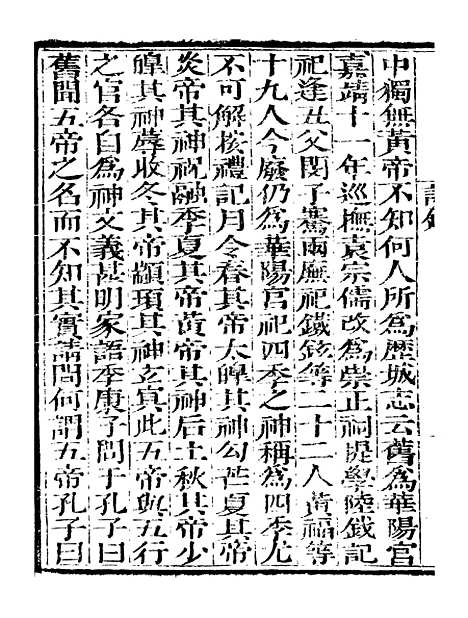 中獨無黃帝不知何人所爲歷城志云舊爲華陽宮
嘉靖十一年巡撫袁宗儒改爲崇正祠提學陸釴記
祀逢丑父閔子騫兩廡祀鐵鉉等二十二人黃福等
十九人今廢仍爲華陽宮祀四季之神稱爲四季尤
不可解按禮記月令春其帝太皥其神勾芒夏其帝
炎帝其神祝融季夏其帝黃帝其神后土秋其帝少
皥其神蓐收冬其帝顓頊其神玄冥此五帝與五行
之官各自爲神文義甚明家語季康子問于孔子曰
舊聞五帝之名而不知其實請問何謂五帝孔子曰